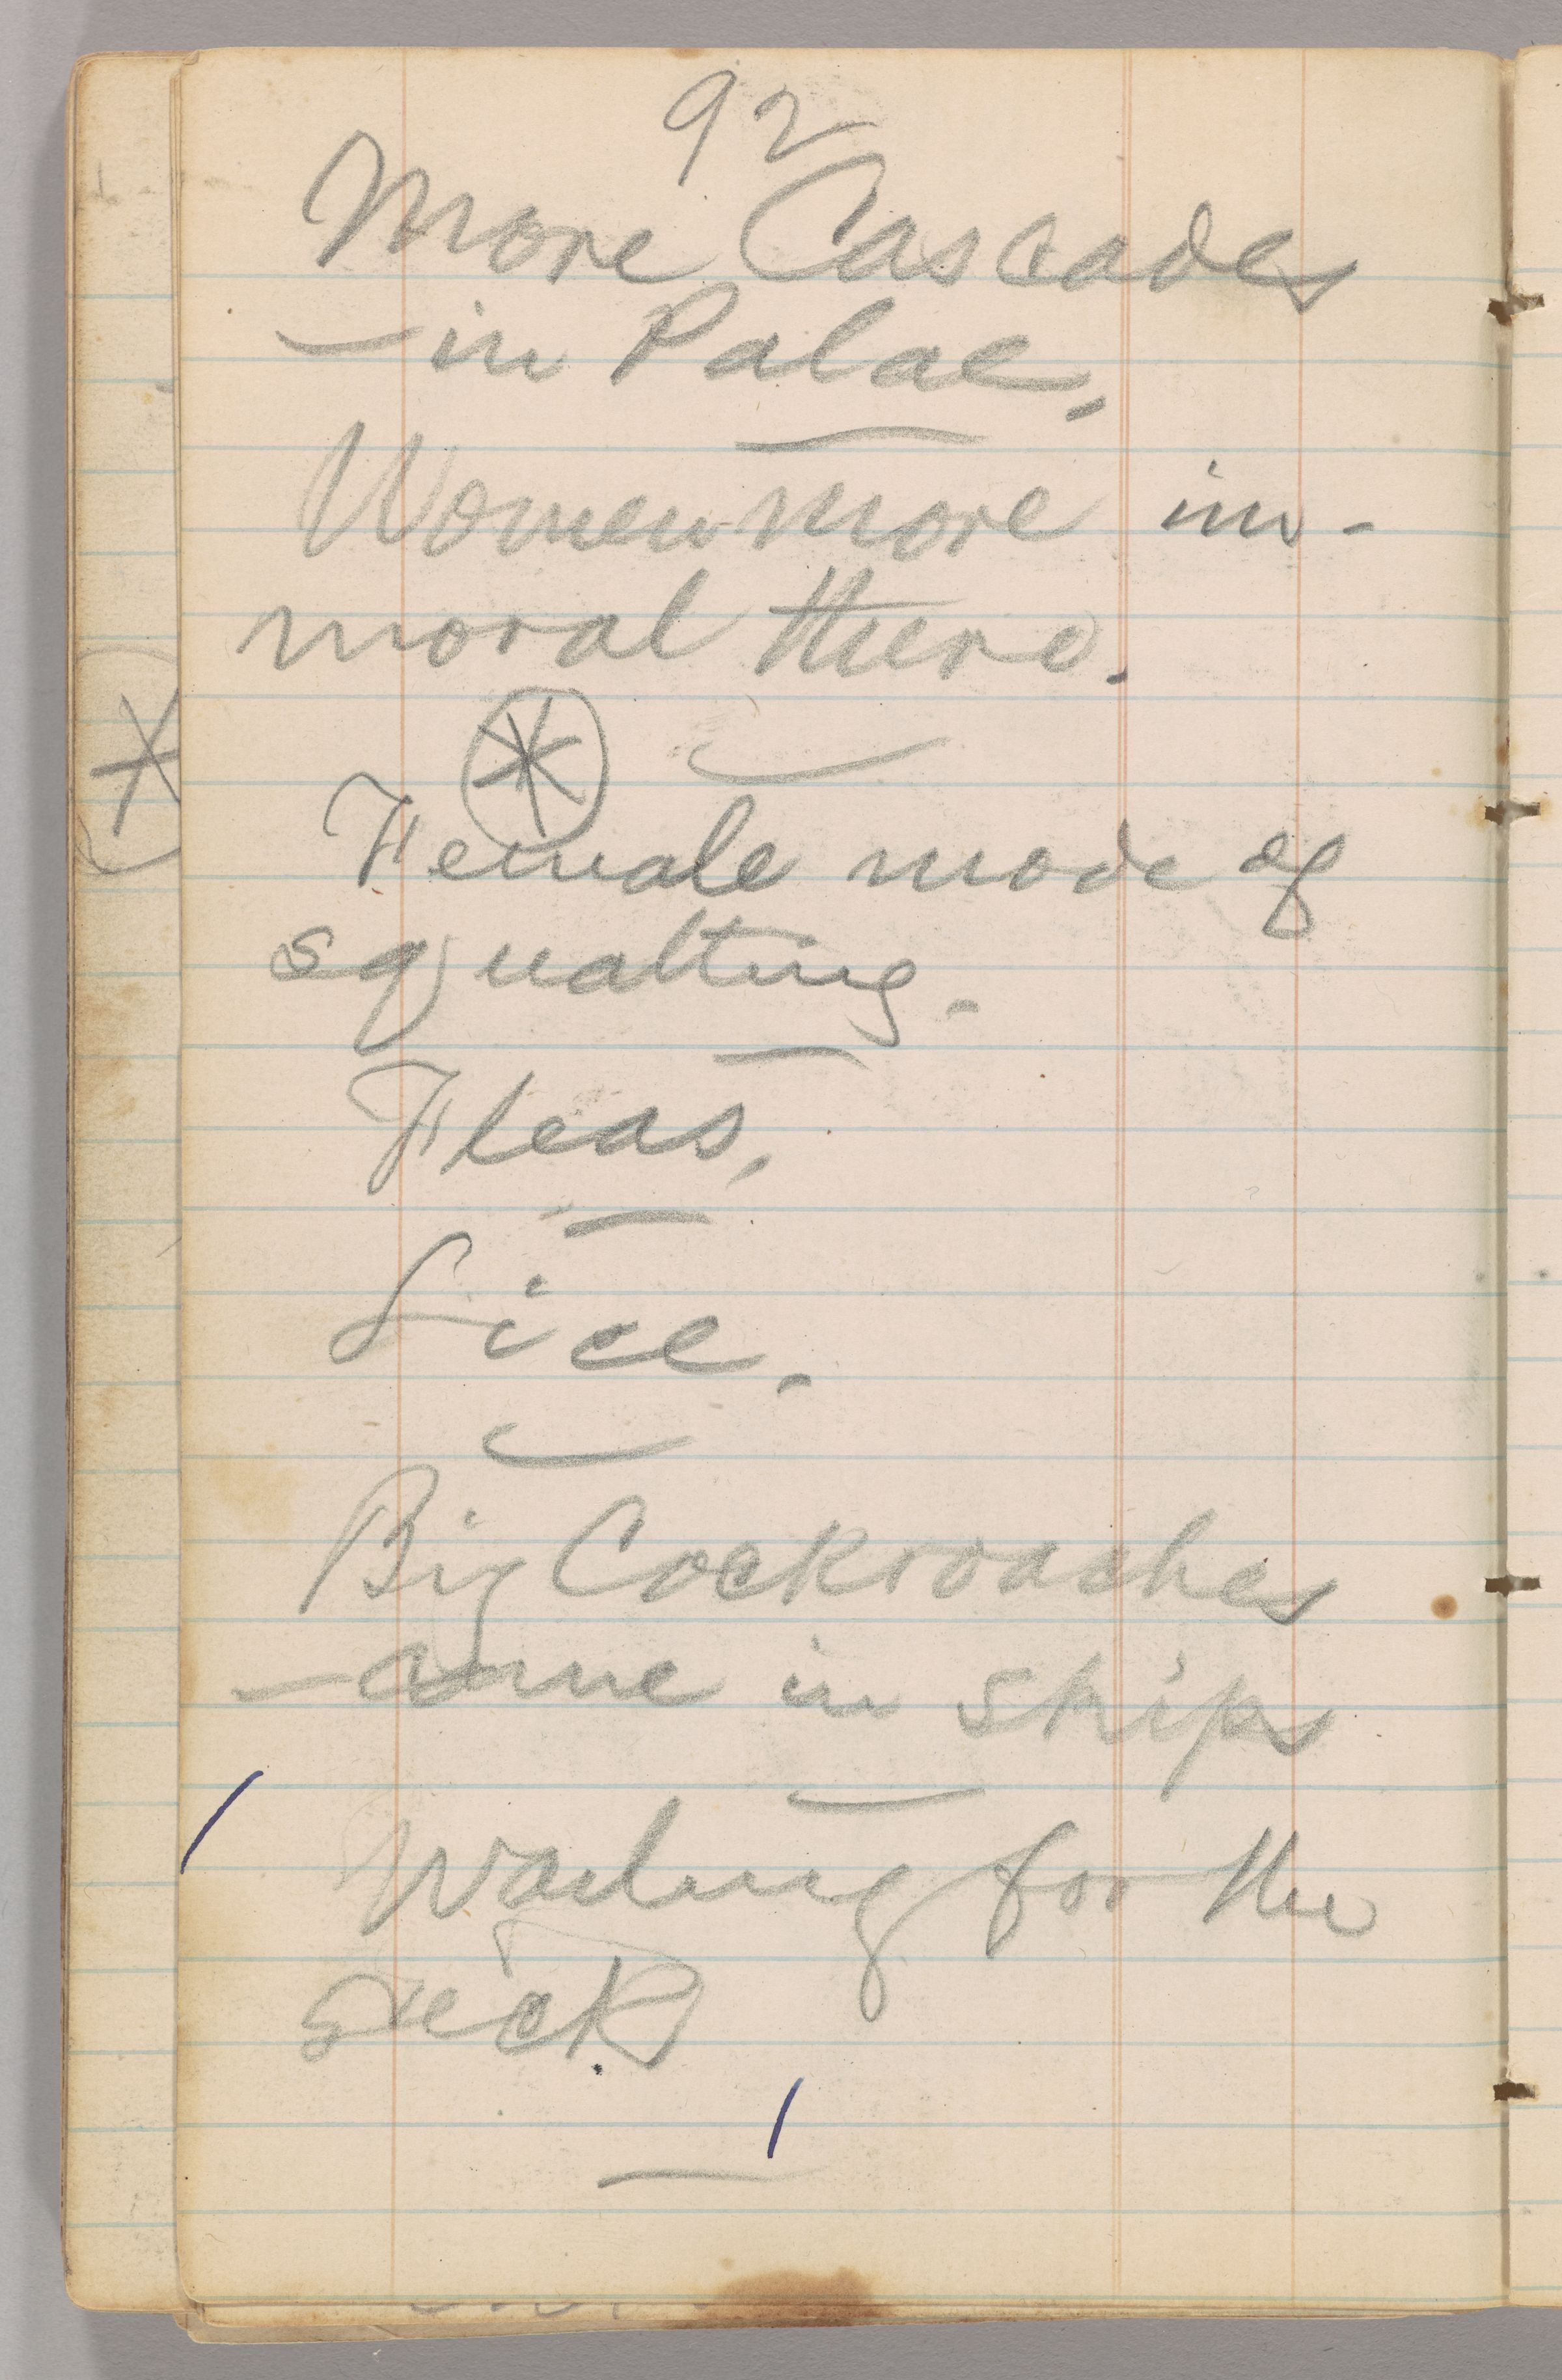 92
More Cascades
— in Palae.
Women more im-
moral there.
Female mode of
squatting.
Fleas.
Lice.
Big Cockroaches
— came in ships
Wailing for the
sick